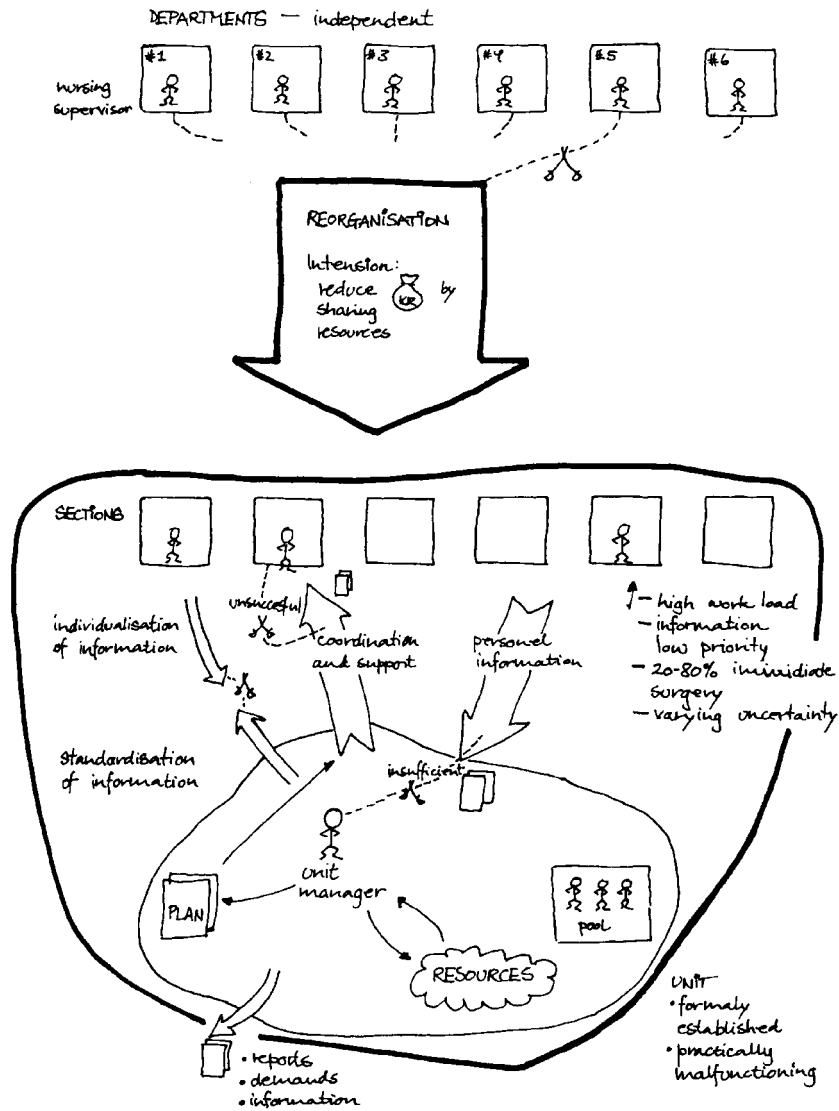 DEPARTMENTS — independent
#1 #2 #3 #4 #5 #6
nursing
supervisor
REORGANISATION
Intension:
reduce KR by
sharing
resources
SECTIONS
unsuccesful
individualisation
of information
coordination
and support
personel
information
– high work load
– information
low priority
– 20-80% immidiate
surgery
– varying uncertainty
standardisation
of information
insufficient
unit
manager
PLAN
pool
RESOURCES
UNIT
• formaly
established
• practically
malfunctioning
• reports
• demands
• information